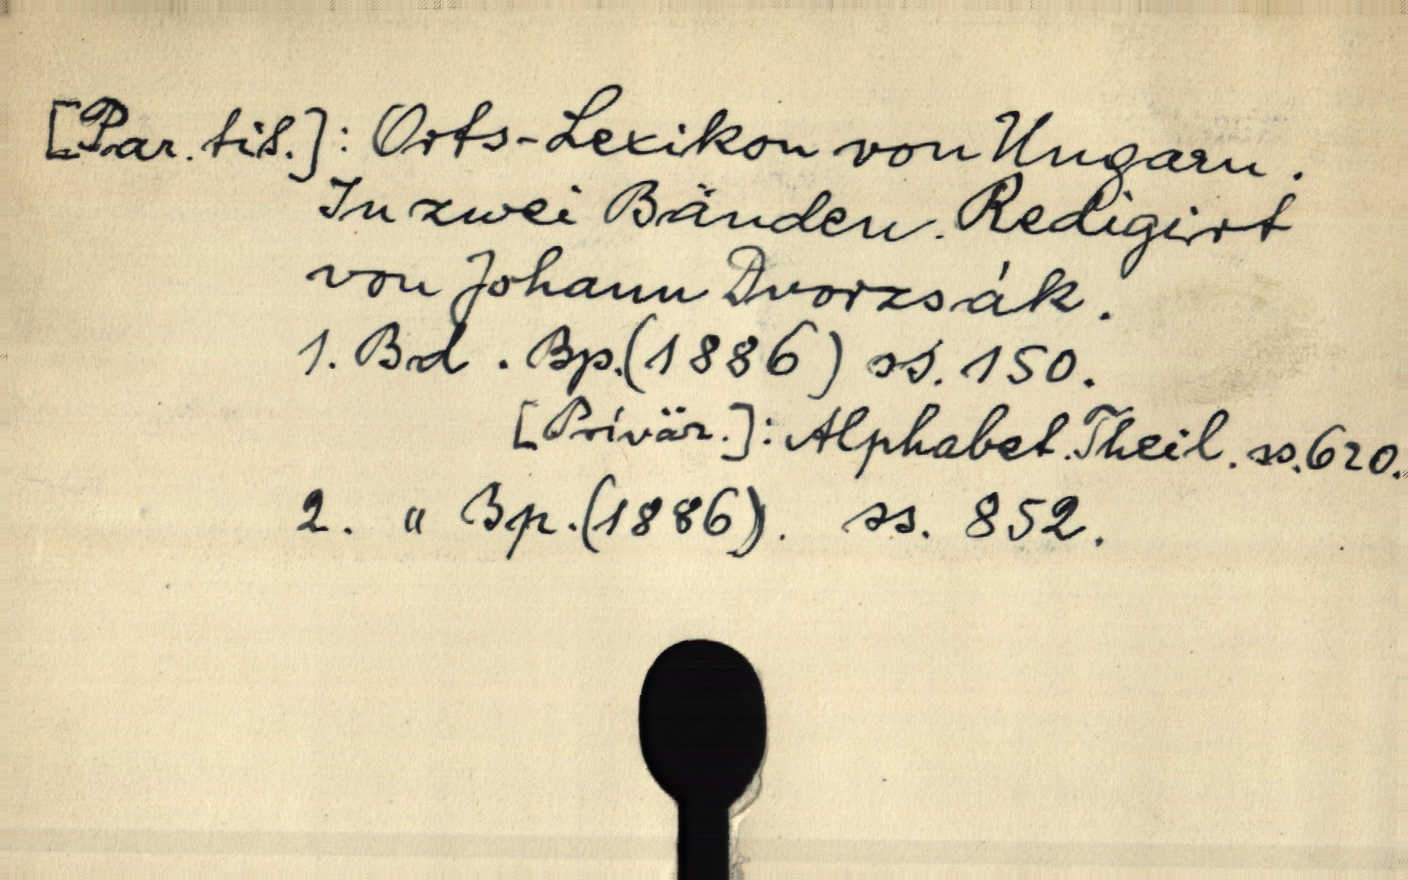 [Par. tit.]: Orts-Lexikon von Ungarn.
In zwei Bänden. Redigirt
von Johann Dvorzsák.
1. Bd. Bp. (1886) ss. 150.
[Privär.]: Alphabet. Theil. ss. 620.
2. " Bp. (1886). ss. 852.